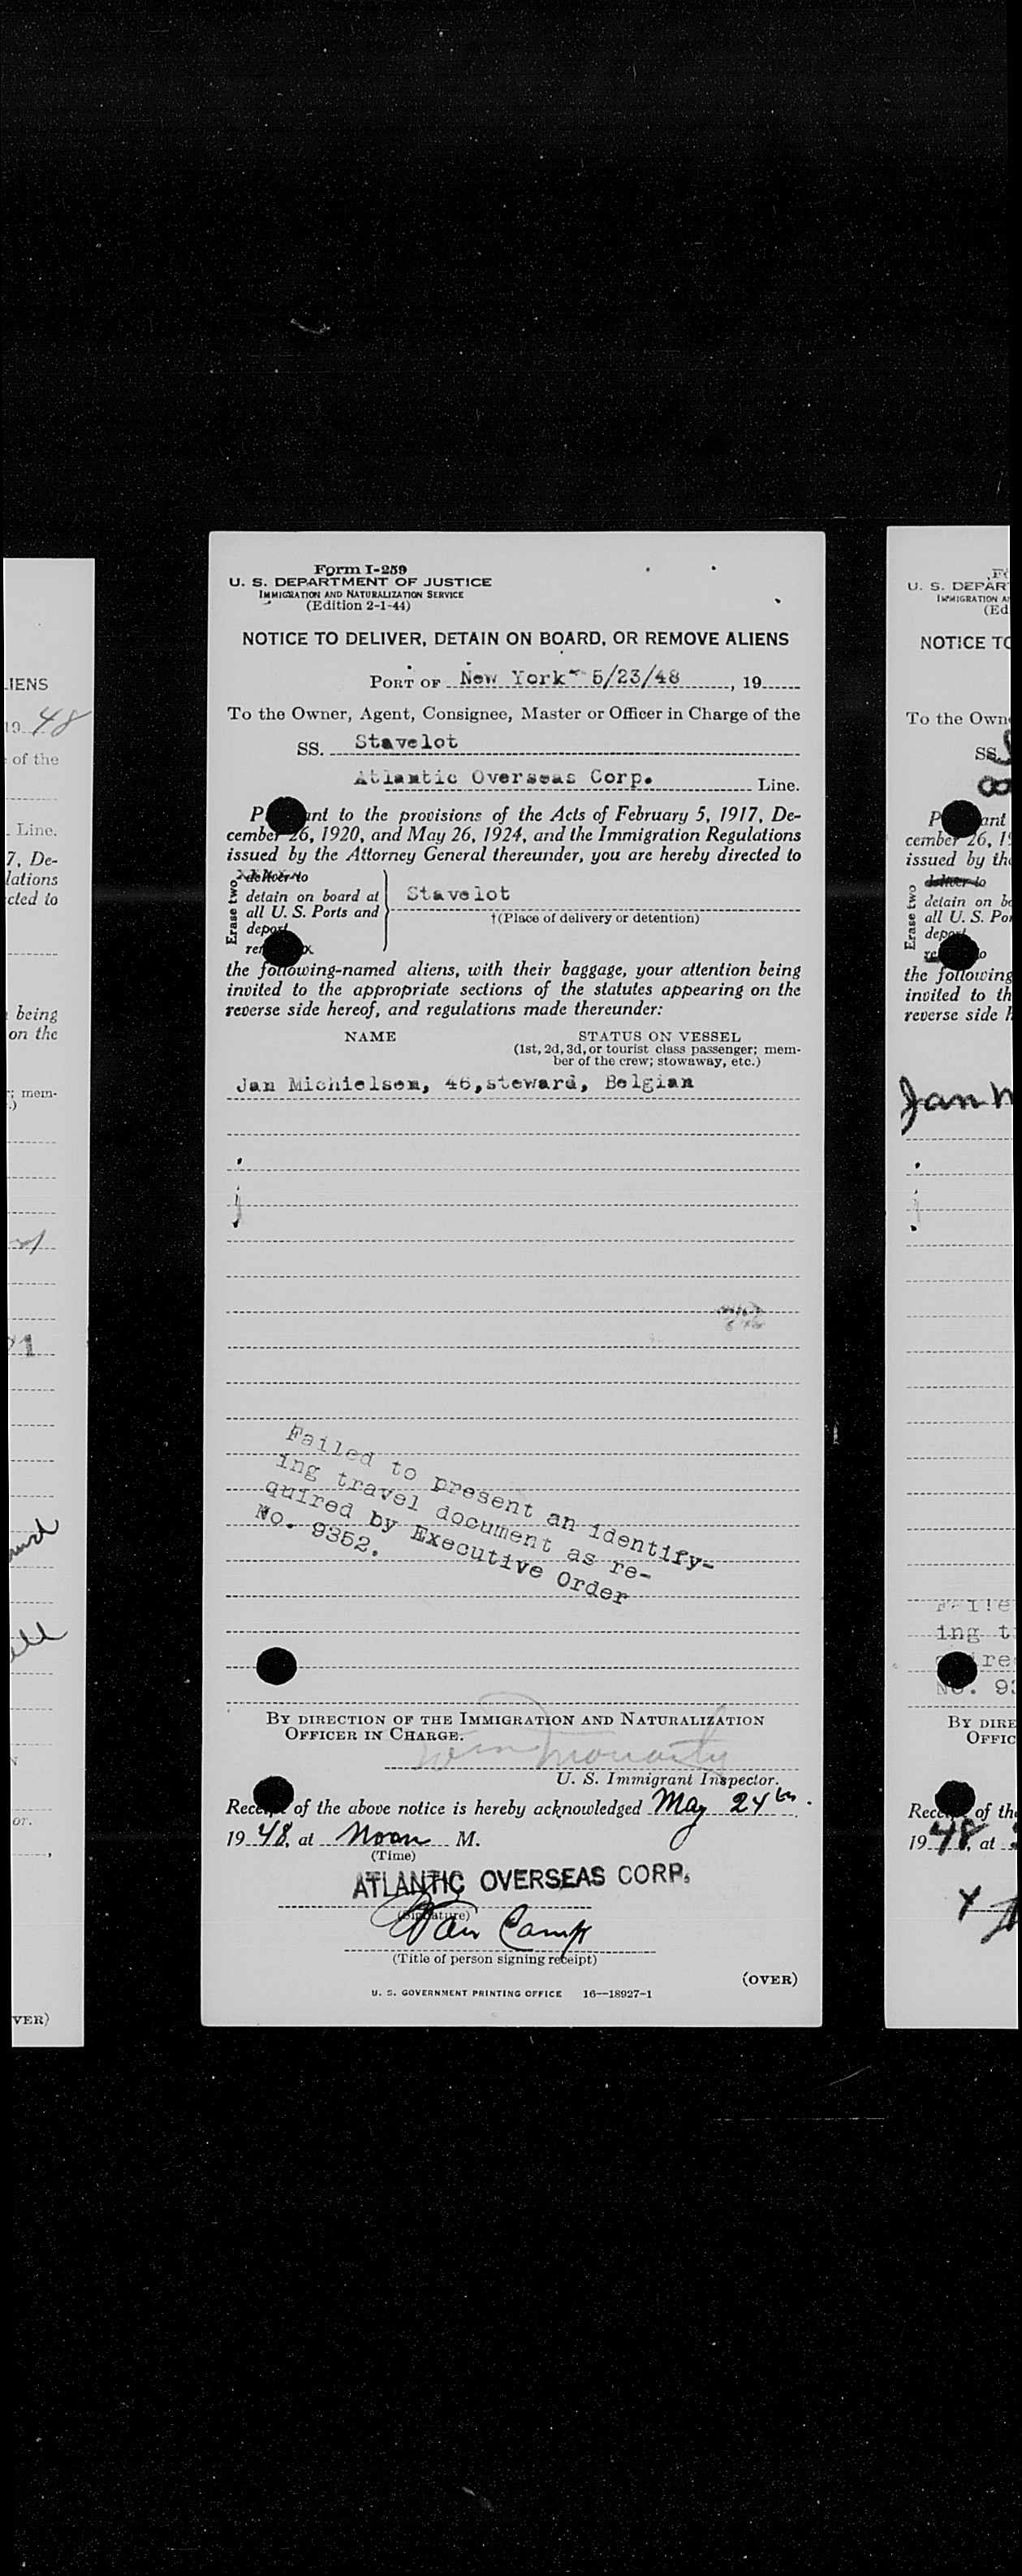 Form I-259
U. S. DEPARTMENT OF JUSTICE
IMMIGRATION AND NATURALIZATION SERVICE
(Edition 2-1-44)
NOTICE TO DELIVER, DETAIN ON BOARD, OR REMOVE ALIENS
PORT OF New York 5/23/48, 19
To the Owner, Agent, Consignee, Master or Officer in Charge of the
SS. Stavelot
Atlantic Overseas Corp. Line.
P ant to the provisions of the Acts of February 5, 1917, De-
cember 26, 1920, and May 26, 1924, and the Immigration Regulations
issued by the Attorney General thereunder, you are hereby directed to
Erase two
deliver to
detain on board at
all U. S. Ports and
deport
Stavelot
†(Place of delivery or detention)
the following-named aliens, with their baggage, your attention being
invited to the appropriate sections of the statutes appearing on the
reverse side hereof, and regulations made thereunder:
NAME STATUS ON VESSEL
(1st, 2d, 3d, or tourist class passenger; mem-
ber of the crew; stowaway, etc.)
Jan Michielsen, 46, steward, Belgian
Failed to present an identify-
ing travel document as re-
quired by Executive Order
No. 9352.
BY DIRECTION OF THE IMMIGRATION AND NATURALIZATION
OFFICER IN CHARGE.
U. S. Immigrant Inspector.
Receipt of the above notice is hereby acknowledged May 24th
1948, at Noon M.
(Time)
ATLANTIC OVERSEAS CORP.
(Signature)
Van Camp
(Title of person signing receipt)
(OVER)
U. S. GOVERNMENT PRINTING OFFICE 16—18927-1
LIENS
19 48
of the
Line.
7, De-
lations
cted to
being
on the
; mem-
.)
or.
VER)
U. S. DEPAR
IMMIGRATION A
(Ed
NOTICE TO
To the Own
SS.
P ant
cember 26, 1
issued by the
Erase two
deliver to
detain on b
all U. S. Po
depor
the following
invited to th
reverse side h
Jan M
Faile
ing t
No. 93
BY DIRE
OFFIC
Rece of th
1948, at